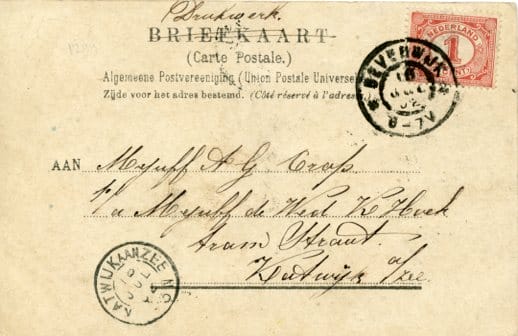 Drukwerk.
BRIEFKAART
(Carte Postale.)
Algemeene Postvereeniging (Union Postale Universe
Zijde voor het adres bestemd. (Côté réservé à l'adres
NEDERLAND
1
CENT
BEVERWIJK
8-9V
AAN Mejuff A G Crop
p/a Mejuff de Wed K Hoek
tram Straat
Katwijk a/zee
KATWIJK AAN ZEE